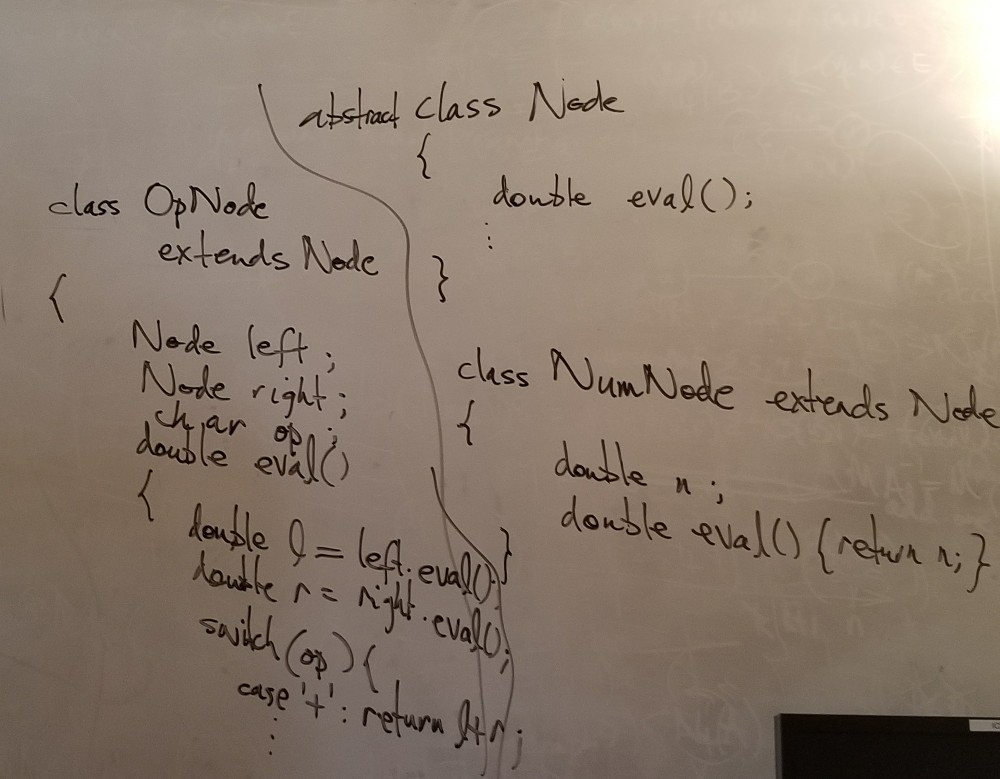 abstract class Node
{
double eval();
⋮
}
class OpNode
extends Node
{
Node left;
Node right;
char op;
double eval()
{
double l = left.eval();
double r = right.eval();
switch(op){
case '+': return l+r;
⋮
class NumNode extends Node
{
double n;
double eval(){return n;}
}